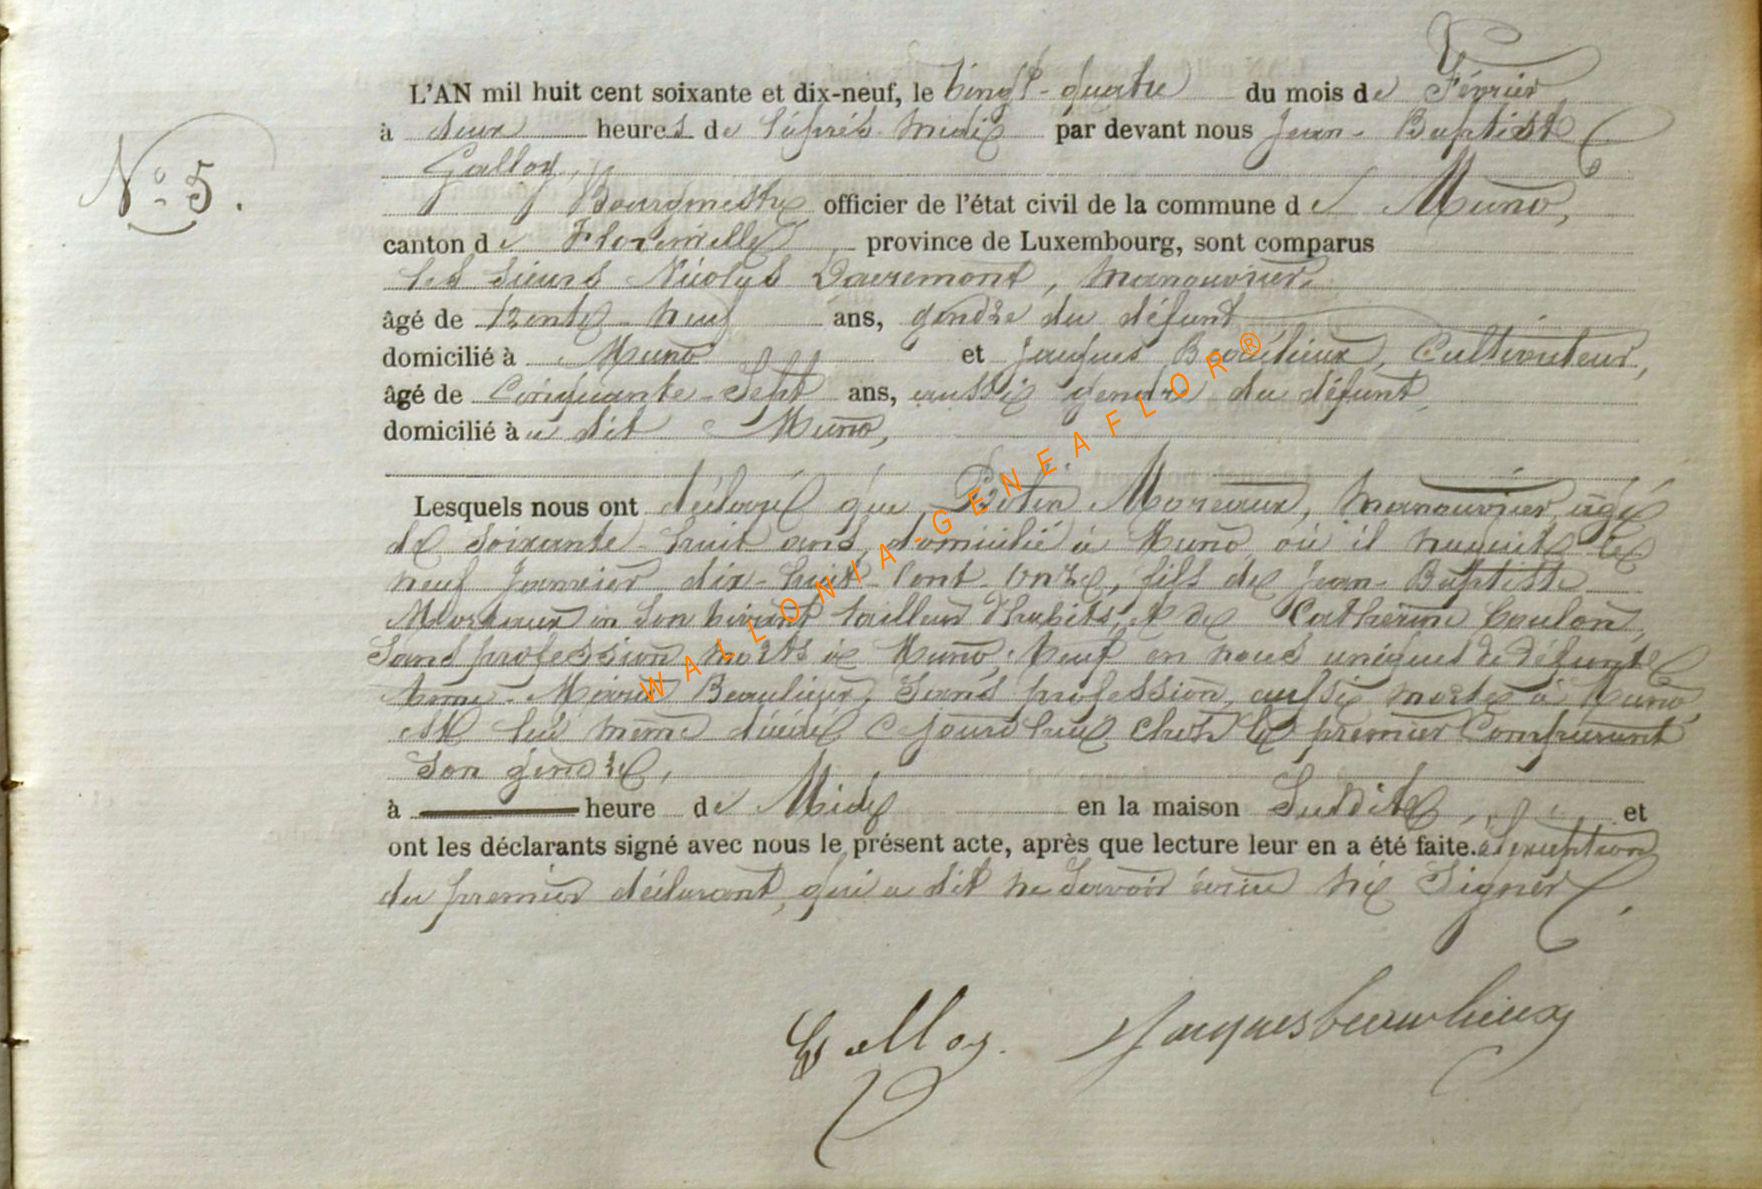 N° 5.
L'AN mil huit cent soixante et dix-neuf, le Vingt-quatre du mois de Février
à deux heures de l'après-midi par devant nous Jean-Baptiste
Galloy,
Bourgmestre officier de l'état civil de la commune de Muno,
canton de Florenville province de Luxembourg, sont comparus
les sieurs Nicolas Davremont, manouvrier,
âgé de trente-neuf ans, gendre du défunt
domicilié à Muno et Jacques Beaulieux, Cultivateur,
âgé de Cinquante-Sept ans, aussi gendre du défunt,
domicilié à u dit Muno,
Lesquels nous ont déclaré que Moreaux, manouvrier, âgé
de Soixante-huit ans, domicilié à Muno où il naquit le
neuf Janvier dix-huit-Cent-Onze, fils de Jean-Baptiste
Moreaux en son vivant tailleur d'habits, et de Catherine Coulon,
Sans profession morts à Muno, Veuf en unique de défunte
Anne-Marie Beaulieux, Sans profession, aussi morte à Muno,
est lui même décédé ce jourd'hui chez le premier Comparant
Son gendre,
à heure de Midi en la maison Susdite, et
ont les déclarants signé avec nous le présent acte, après que lecture leur en a été faite. à l'exception
du premier déclarant, qui a dit ne Savoir écrire ni Signer.
Galloy. Jacques beaulieux
WALLONIA-GENEAFLOR®